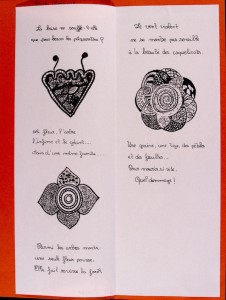 La brise ne souffle-t-elle
que pour bercer les pâquerettes ?
La fleur, l'arbre
L'infime et le géant...
d'une même famille...
Parmi les arbres morts
une seule fleur pousse.
Elle fait revivre la forêt
Le vent violent
ne se montre pas sensible
à la beauté des coquelicots.
Une graine, une tige, des pétales
et des feuilles...
Pour mourir si vite,
Quel dommage !